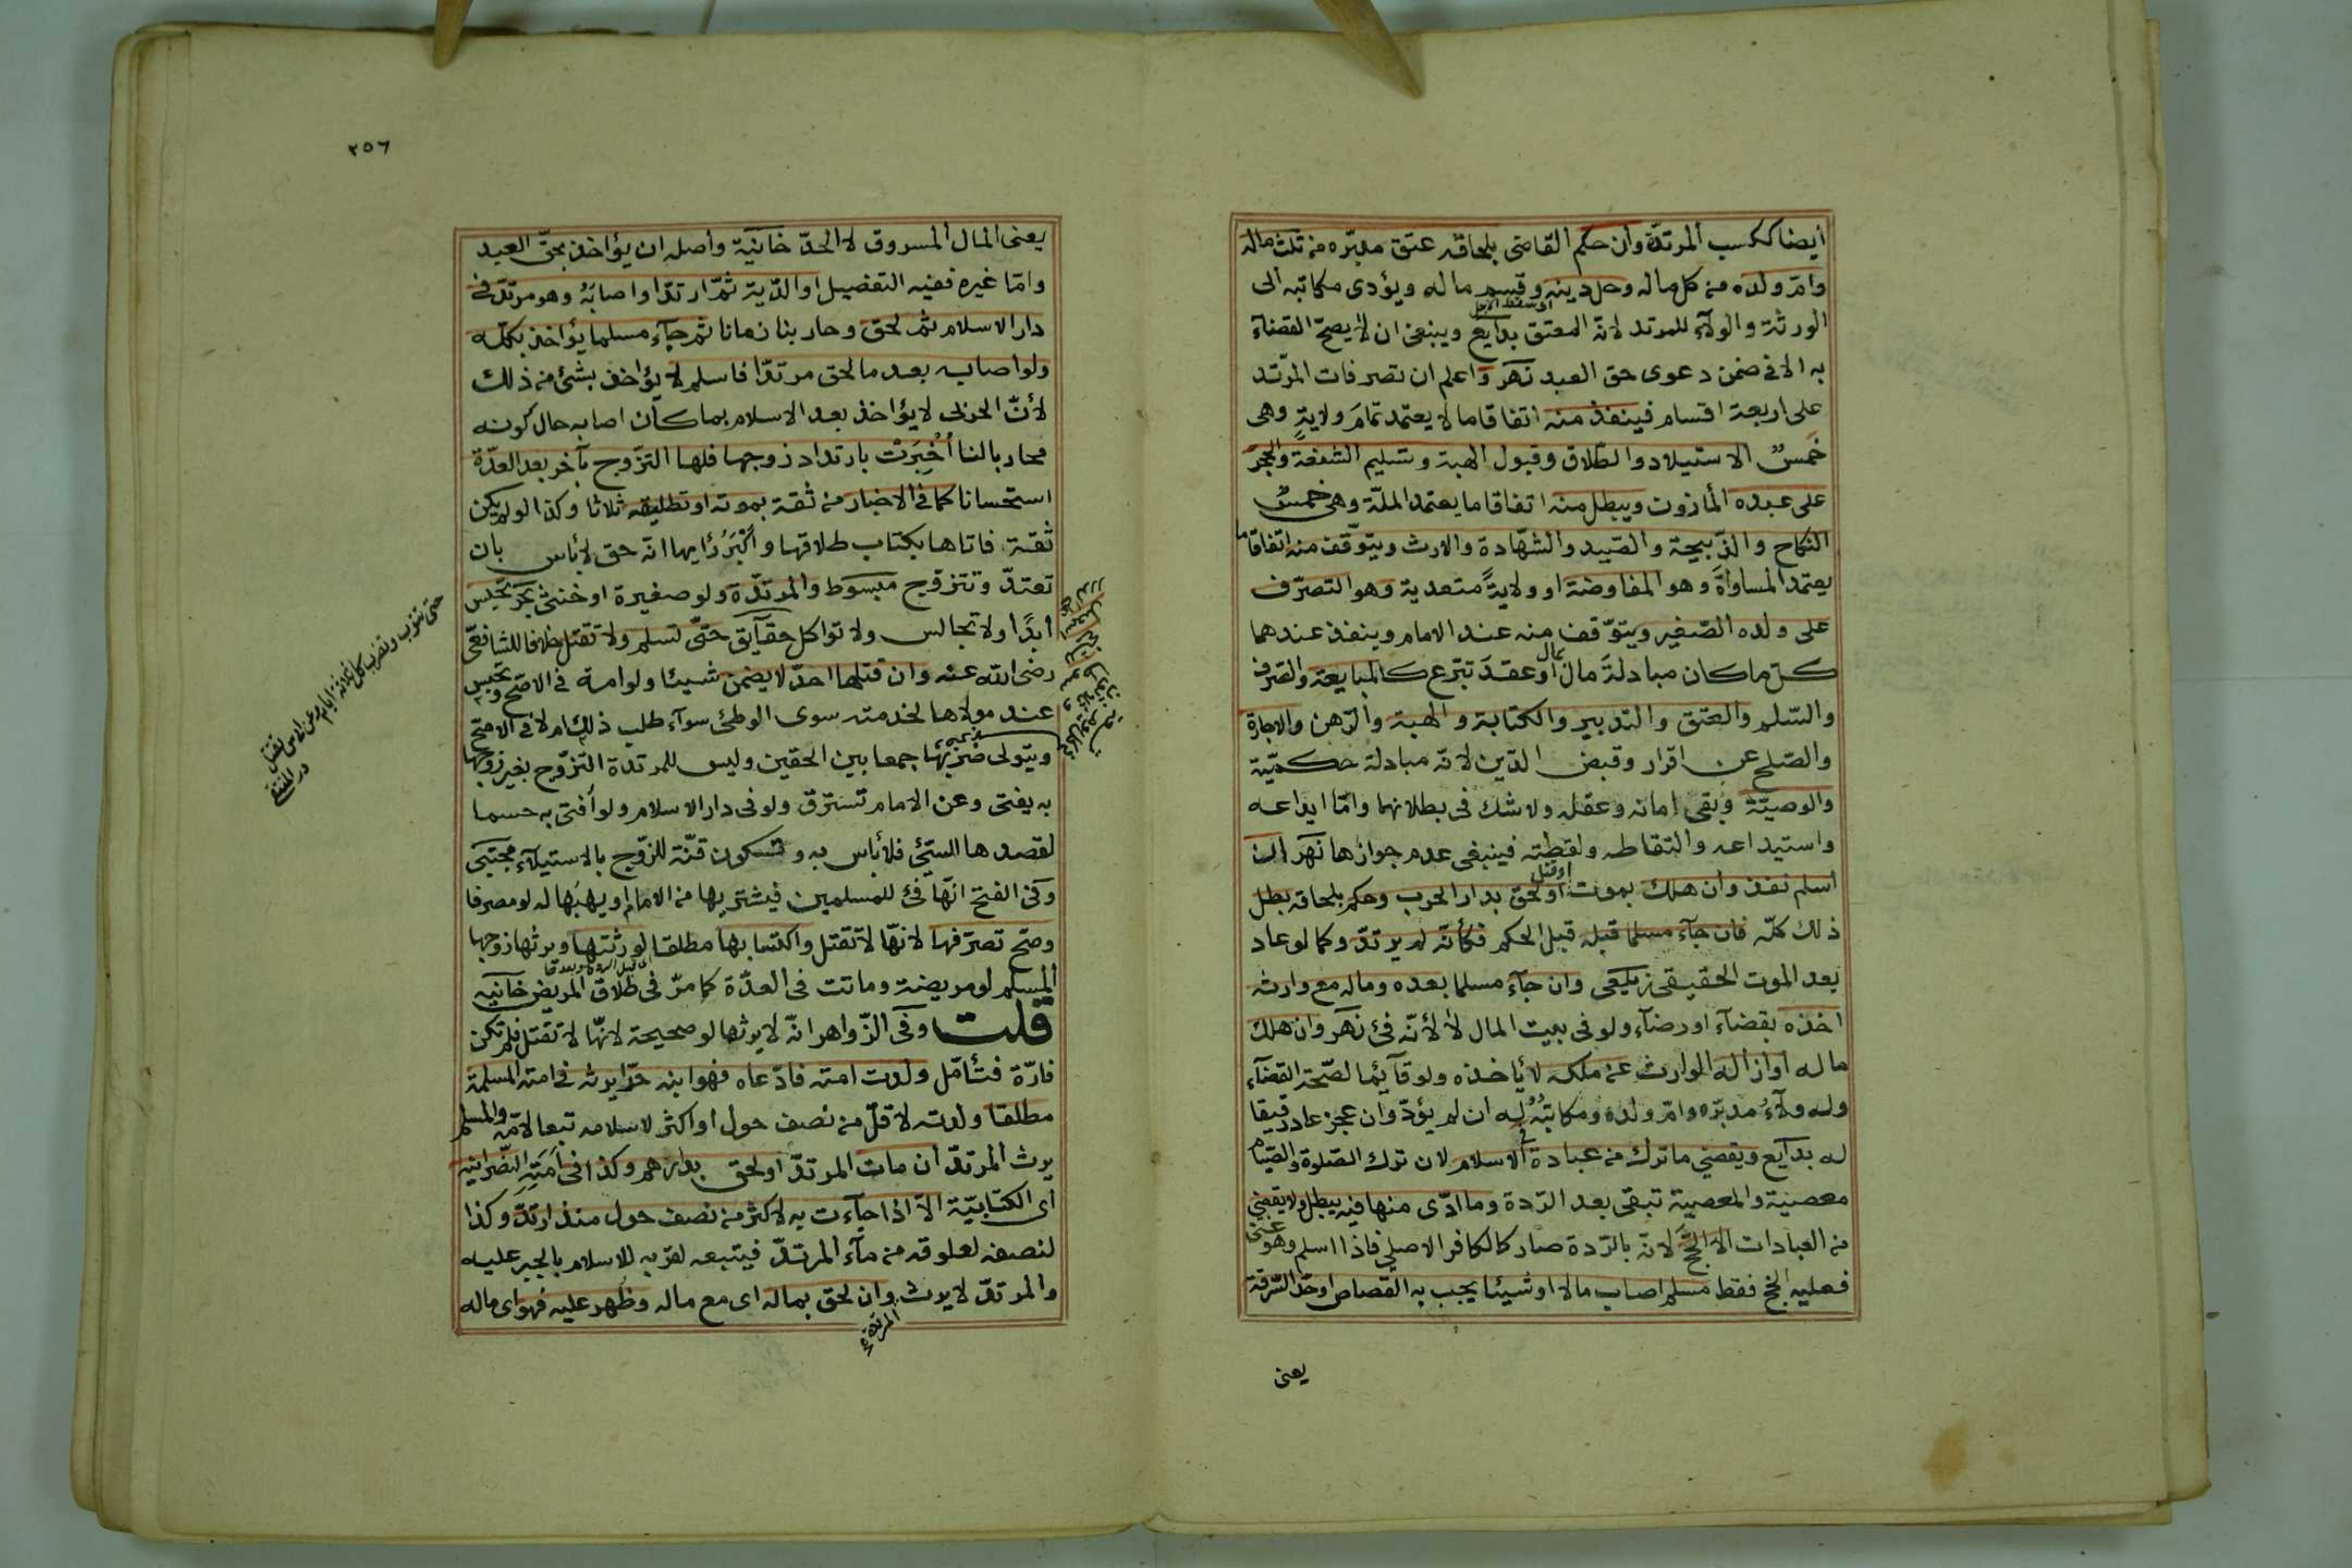 ايضا ككسب المرتدة وان حكم القاضى بلحاقه عتق مدبره من ثلث ماله
وام ولده من كل ماله وحل دينه وقسم ماله ويؤدى مكاتبه الى
الورثة والولاء للمرتد لانه المعتق بدايع وينبغى ان لا يصح القضاء
به الا فى ضمن دعوى حق العبد نهر واعلم ان تصرفات المرتد
على اربعة اقسام فينفذ منه اتفاقا ما لا يعتمد تمام ولاية وهى
خمس الاستيلاد والطلاق وقبول الهبة وتسليم الشفعة والحجر
على عبده المأذون ويبطل منه اتفاقا ما يعتمد الملة وهى خمس
النكاح والذبيحة والصيد والشهادة والارث ويتوقف منه اتفاقا ما
يعتمد المساواة وهو المفاوضة او ولاية متعدية وهو التصرف
على ولده الصغير ويتوقف منه عند الامام وينفذ عندهما
كل ما كان مبادلة مال بمال او عقد تبرع كالمبايعة والصرف
والسلم والعتق والتدبير والكتابة والهبة والرهن والاجارة
والصلح عن اقرار وقبض الدين لانه مبادلة حكمية
والوصية وبقى امانه وعقله ولا شك فى بطلانهما واما ايداعه
واستيداعه والتقاطه ولقطته فينبغى عدم جوازها نهر ان
اسلم نفذ وان هلك بموت او قتل او لحق بدار الحرب وحكم بلحاقه بطل
ذلك كله فان جاء مسلما قبله قبل الحكم فكأنه لم يرتد وكما لو عاد
بعد الموت الحقيقى زيلعى وان جاء مسلما بعده وماله مع وارثه
اخذه بقضاء او رضاء ولو فى بيت المال لا لأنه فئ نهر وان هلك
ماله او ازاله الوارث عن ملكه لا يأخذه ولو قآئما لصحة القضآء
وله ولاء مدبره وام ولده ومكاتبه له ان لم يؤد وان عجز عاد رقيقا
له بدايع ويقضي ما ترك من عبادة فى الاسلام لان ترك الصلوة والصيام
معصية والمعصية تبقى بعد الردة وما ادى منها فيه يبطل ولا يقضي
من العبادات الا الحج لانه بالردة صار كالكافر الاصلي فاذا اسلم وهو غنى
فعليه الحج فقط مسلم اصاب مالا او شيئا يجب به القصاص او حد السرقة
يعنى
٢٥٦
يعنى المال المسروق لا الحد خانية واصله ان يؤاخذ بحق العبد
واما غيره ففيه التفصيل او الدية ثم ارتد او اصابه وهو مرتد فى
دار الاسلام ثم لحق وحاربنا زمانا ثم جاء مسلما يؤاخذ بكله
ولو اصابه بعد ما لحق مرتدا فاسلم لا يؤاخذ بشئ من ذلك
لأن الحربى لا يؤاخذ بعد الاسلام بما كان اصابه حال كونه
محاربا لنا أخبرت بارتداد زوجها فلها التزوج بآخر بعد العدة
استحسانا كما فى الاخبار من ثقة بموته او تطليقه ثلاثا وكذا لو لم يكن
ثقة فاتاها بكتاب طلاقها وأكبر رأيها انه حق لا بأس بان
تعتد وتتزوج مبسوط والمرتدة ولو صغيرة او خنثى بحر تحبس
ابدا ولا تجالس ولا تواكل حقآيق حتى تسلم ولا تقتل خلافا للشافعى
رضى الله عنه وان قتلها احد لا يضمن شيئا ولو امة فى الاصح وتحبس
عند مولاها لخدمته سوى الوطئ سوآء طلب ذلك ام لا فى الاصح
ويتولى ضربها جمعا بين الحقين وليس للمرتدة التزوج بغير زوجها
به يفتى وعن الامام تسترق ولو فى دار الاسلام ولو افتى به حسما
لقصدها السئ فلا بأس به وتكون قنة للزوج بالاستيلآء مجتبى
وفى الفتح انها فئ للمسلمين فيشتريها من الامام او يهبها له لو مصرفا
وصح تصرفها لانها لا تقتل واكتسابها مطلقا لورثتها ويرثها زوجها
المسلم لو مريضة وماتت فى العدة كما مر فى طلاق المريض خانيه
قلت وفى الزواهر انه لا يرثها لو صحيحة لانها لا تقتل فلم تكن
فارة فتأمل ولدت امته فادعاه فهو ابنه حرا يرثه فى امته المسلمة
مطلقا ولدته لاقل من نصف حول او اكثر لاسلامه تبعا لامه والمسلم
يرث المرتد ان مات المرتد او لحق بدارهم وكذا فى امته النصرانيه
اى الكتابية الا اذا جاءت به لاكثر من نصف حول منذ ارتد وكذا
لنصفه لعلوقه من مآء المرتد فيتبعه لقربه للاسلام بالجبر عليه
والمرتد لا يرث المرتد وان لحق بماله اى مع ماله وظهر عليه فهو اى ماله